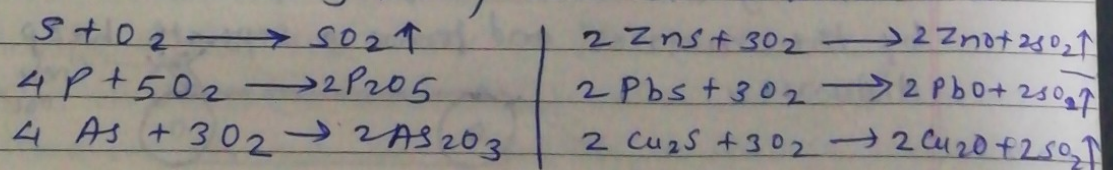 S + O2 → SO2↑
4P + 5O2 → 2P2O5
4 As + 3O2 → 2As2O3
2 Zns + 3O2 → 2 Zno + 2so2↑
2 Pbs + 3O2 → 2 PbO + 2so2↑
2 Cu2S + 3O2 → 2 Cu2O + 2SO2↑